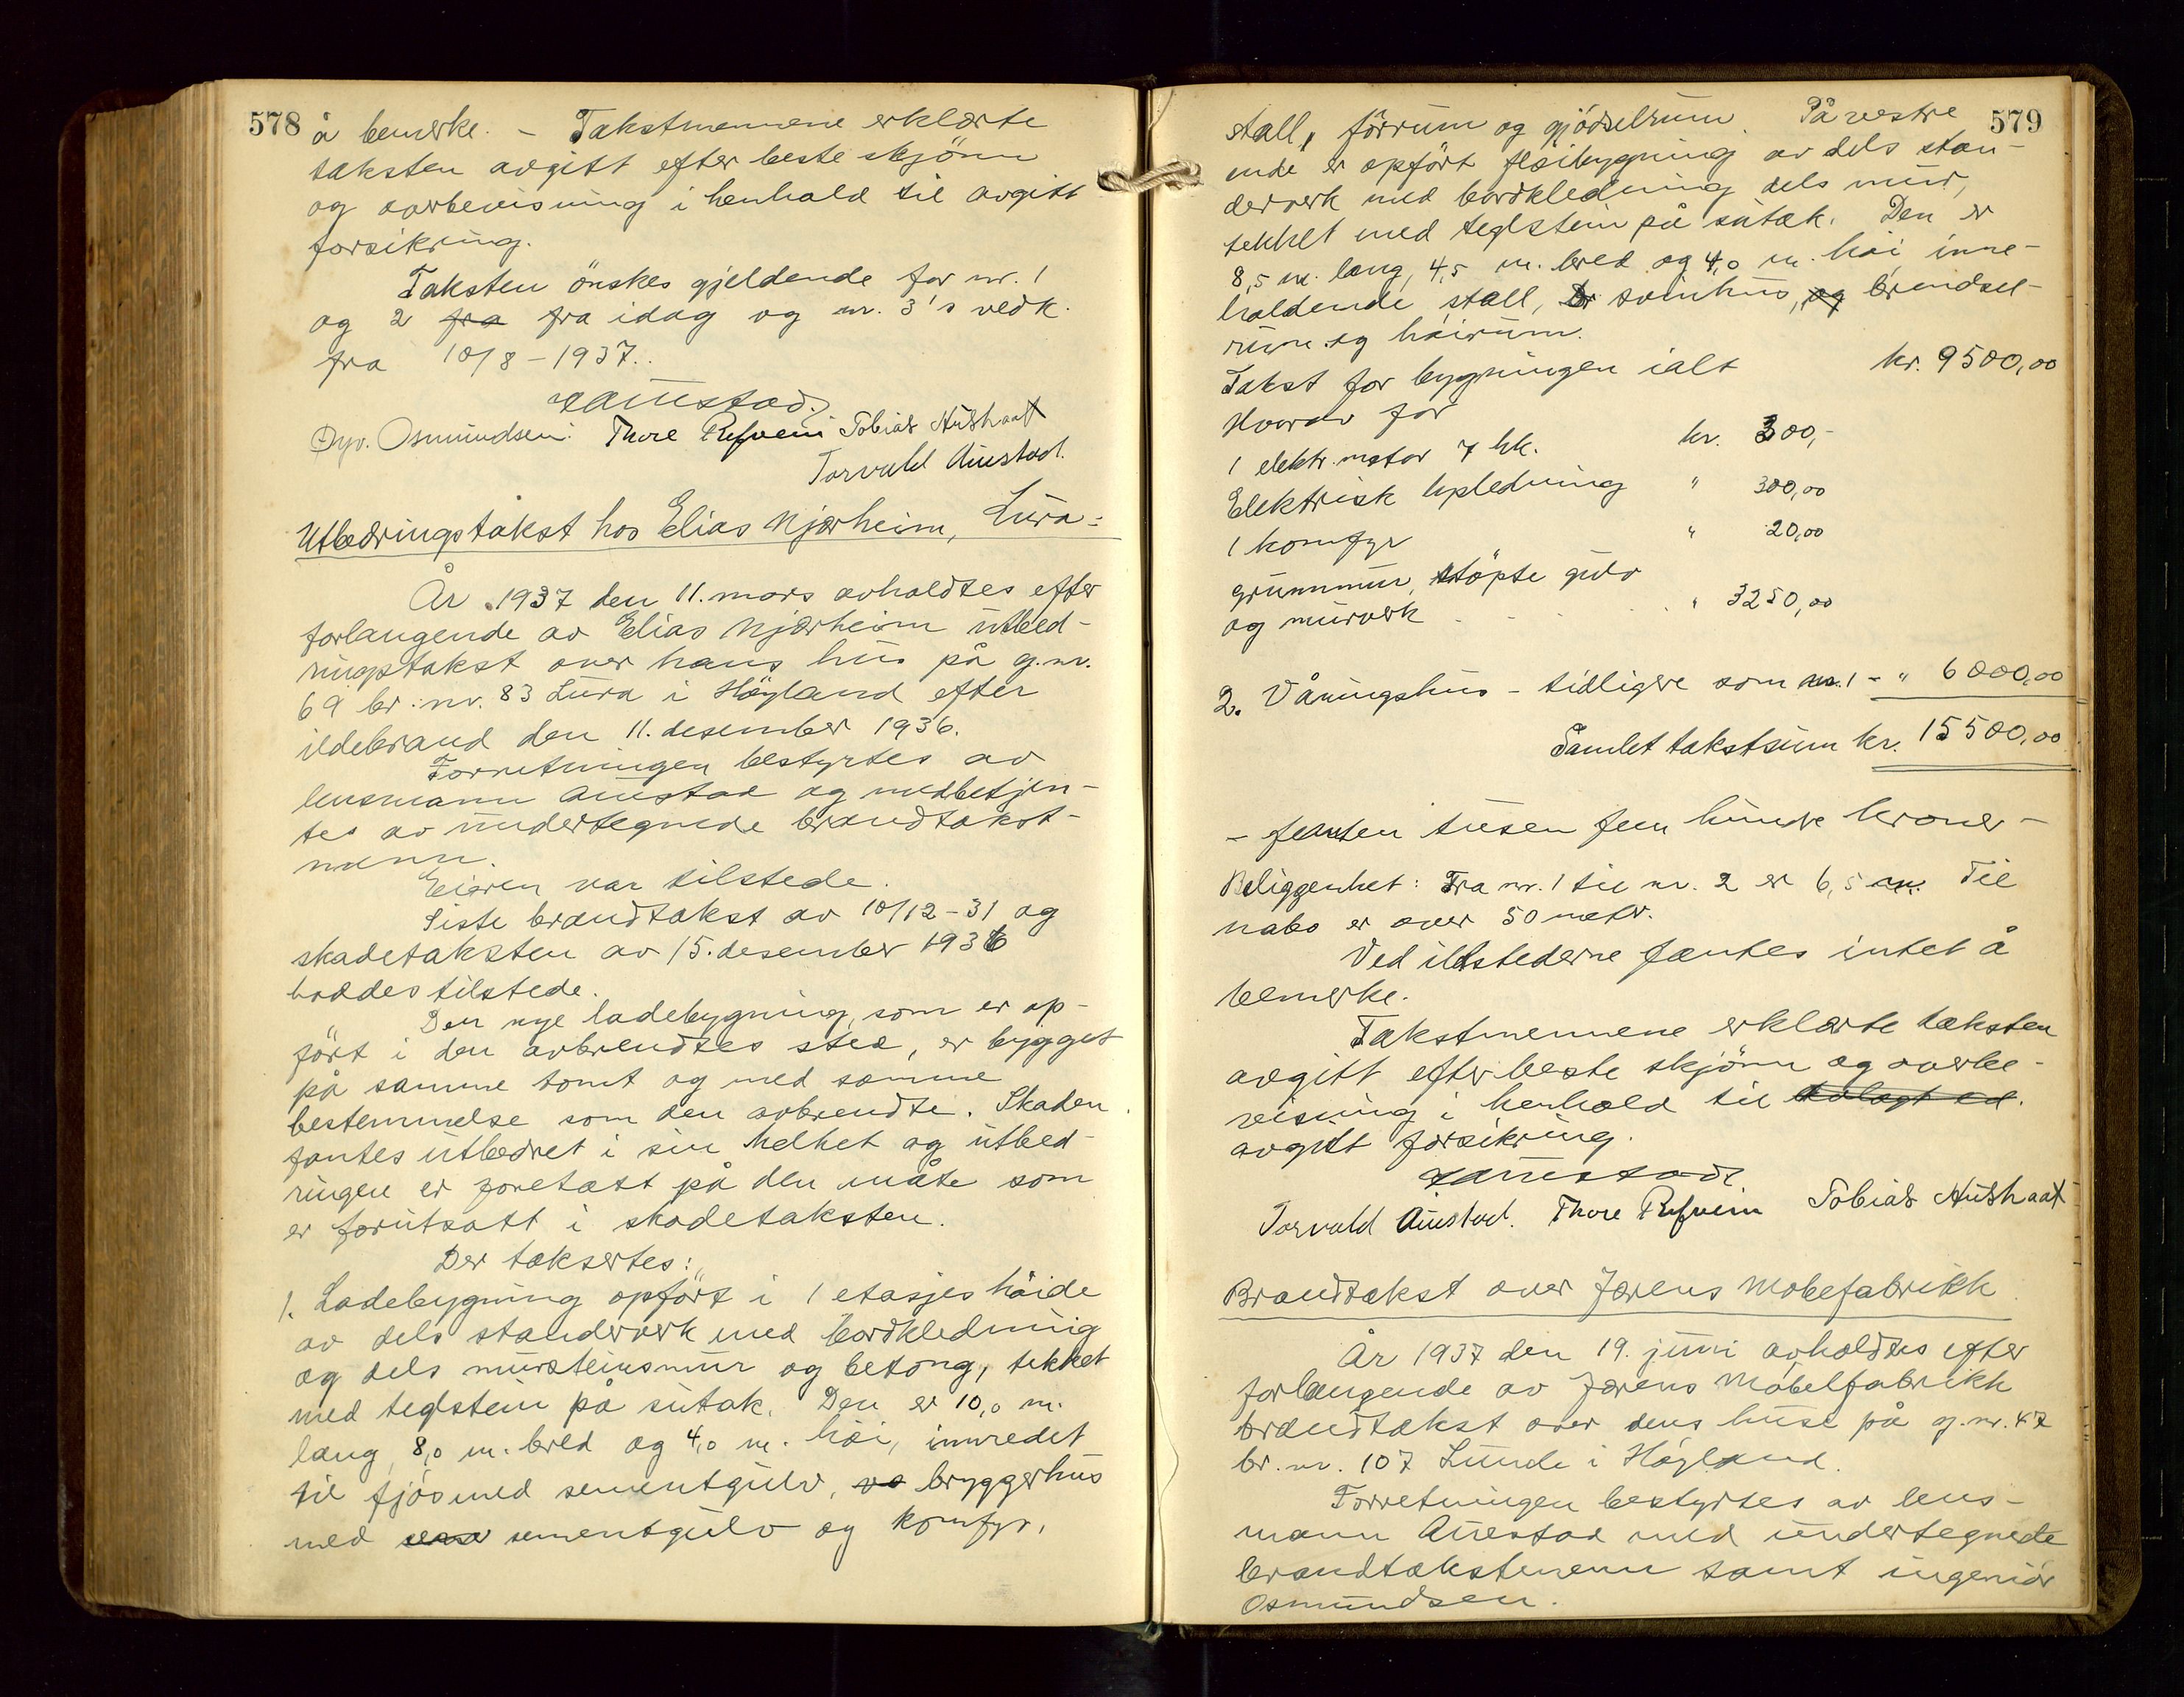 578
å bemerke. – Takstmennene erklærte
taksten avgitt efter beste skjönn
og overbevisning i henhold til avgitt
forsikring.
Taksten önskes gjeldende for nr. 1
og 2 fra fra idag og nr. 3's vedk.
fra 10/8 – 1937.
Auestad.
Osmundsen. Thore Refvem Tobias Aushaat
Torvald Auestad.
Utbedringstakst hos Elias Njærheim, Lura:
År 1937 den 11. mars avholdtes efter
forlangende av Elias Njærheim utbed-
ringstakst over hans hus på g.nr.
69 br. nr. 83 Lura i Höyland efter
ildebrand den 11. desember 1936.
Forretningen bestyrtes av
lensmann Auestad og medbetjen-
tes av undertegnede brandtakst-
menn.
Eieren var tilstede.
Siste brandtakst av 10/12 – 31 og
skadetaksten av 15. desember 1936
haddes tilstede.
Den nye ladebygning, som er op-
fört i den avbrendtes sted, er bygget
på samme tomt og med samme
bestemmelse som den avbrendte. Skaden
fantes utbedret i sin helhet og utbed-
ringen er foretatt på den måte som
er forutsatt i skadetaksten.
Der takseres:
1. Ladebygning opfört i 1 etasjes höide
av dels standerverk med bordkledning
og dels mursteinsmur og betong, tekket
med teglstein på sutak. Den er 10,0 m.
lang, 8,0 m. bred og 4,0 m. höi, innredet
til fjös med sementgulv, bryggerhus
med sementgulv og komfyr,
579
stall, fôrrum og gjödselrum. På vestre
ende er opfört flöibygning av dels stan-
derverk med bordkledning dels mur,
tekket med teglstein på sutak. Den er
8,5 m. lang, 4,5 m. bred og 4,0 m. höi inne-
holdende stall, svinhus, og brendsel-
rum og höirum.
Takst for bygningen ialt kr. 9500,00
Hvorav for
1 elektr. motor 7 hk. kr. 300,-
Elektrisk opledning " 300,00
1 komfyr " 20,00
grunnmur, stöpte gulv
og murverk . . . . . " 3250,00
2. Våningshus – tidligere som nr. 1 – " 6000,00
Samlet takstsum kr. 15500,00
– femten tusen fem hundre kroner –
Beliggenhet: Fra nr. 1 til nr. 2 er 6,5 m. Til
nabo er over 50 metr.
Ved ildstederne fantes intet å
bemerke.
Takstmennene erklærte taksten
avgitt efter beste skjönn og overbe-
visning i henhold til avlagt ed.
avgitt forsikring.
Auestad.
Torvald Auestad. Thore Refvem Tobias Aushaat
Brandtakst over Jærens Möbefabrikk.
År 1937 den 19. juni avholdtes efter
forlangende av Jærens Möbelfabrikk
brandtakst over dens huse på g.nr. 47
br. nr. 107 Lunde i Höyland.
Forretningen bestyrtes av lens-
mann Auestad med undertegnede
brandtakstmenn samt ingeniör
Osmundsen.